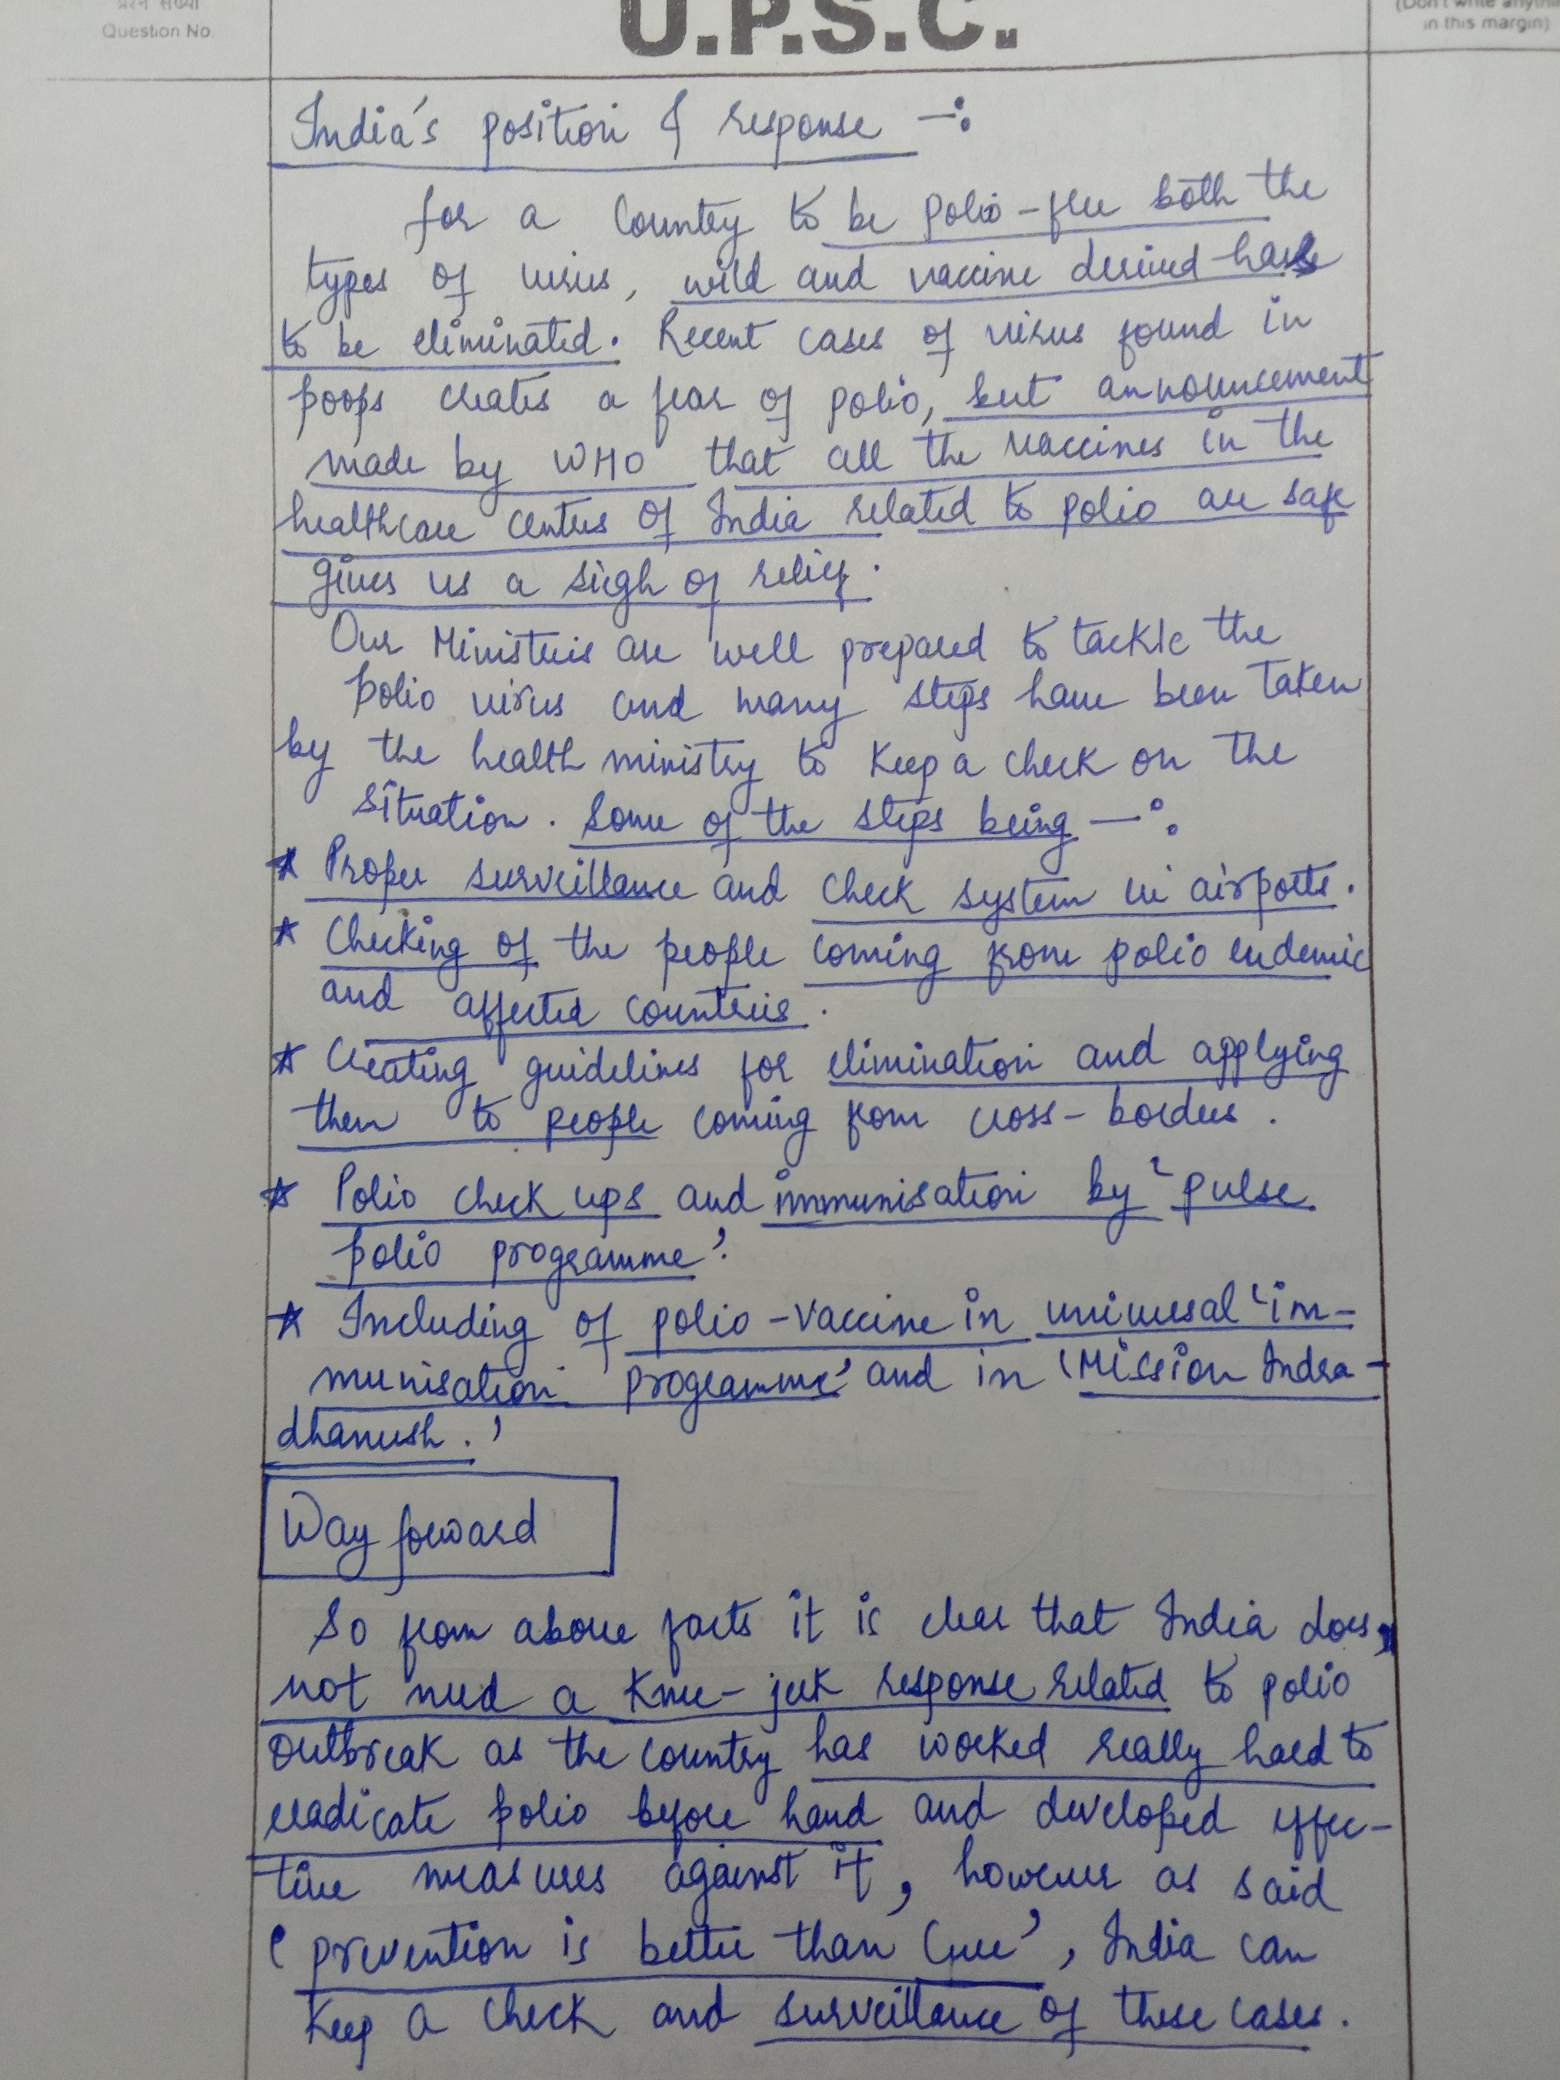 Question No.
U.P.S.C.
(Don't write anything
in this margin)
India's position & response —:
for a Country to be polio-free both the
types of virus, wild and vaccine derived has
to be eliminated. Recent cases of virus found in
poops creates a fear of polio, but announcement
made by WHO that all the vaccines in the
healthcare centers of India related to polio are safe
gives us a siegh of relief.
Our Ministeries are well prepared to tackle the
polio virus and many steps have been taken
by the health ministry to keep a check on the
situation. Some of the steps being —:
* Proper surveillance and check system in airports.
* Checking of the people coming from polio endemic
and affected countries.
* Creating guidelines for elimination and applying
them to people coming from cross-borders.
* Polio check ups and immunisation by 'pulse
polio programme'.
* Including of polio-vaccine in universal 'im-
munisation programme' and in 'Mission Indra-
dhanush.'
Way forward
So from above facts it is clear that India does
not need a knee-jerk response related to polio
outbreak as the country has worked really hard to
eradicate polio before hand and developed effec-
tive measures against it, however as said
'prevention is better than Cure', India can
keep a check and surveillance of these cases.